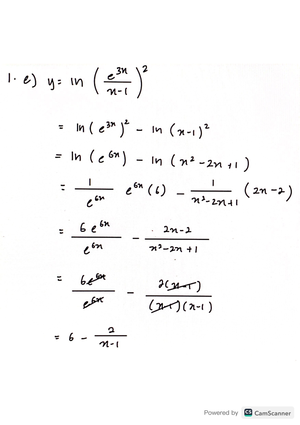 1. e) y = ln (e^3x / x-1)^2
= ln(e^3x)^2 - ln(x-1)^2
= ln(e^6x) - ln(x^2-2x+1)
= 1/e^6x e^6x(6) - 1/x^2-2x+1 (2x-2)
= 6e^6x/e^6x - 2x-2/x^2-2x+1
= 6e^6x/e^6x - 2(x-1)/(x-1)(x-1)
= 6 - 2/x-1
Powered by CS CamScanner